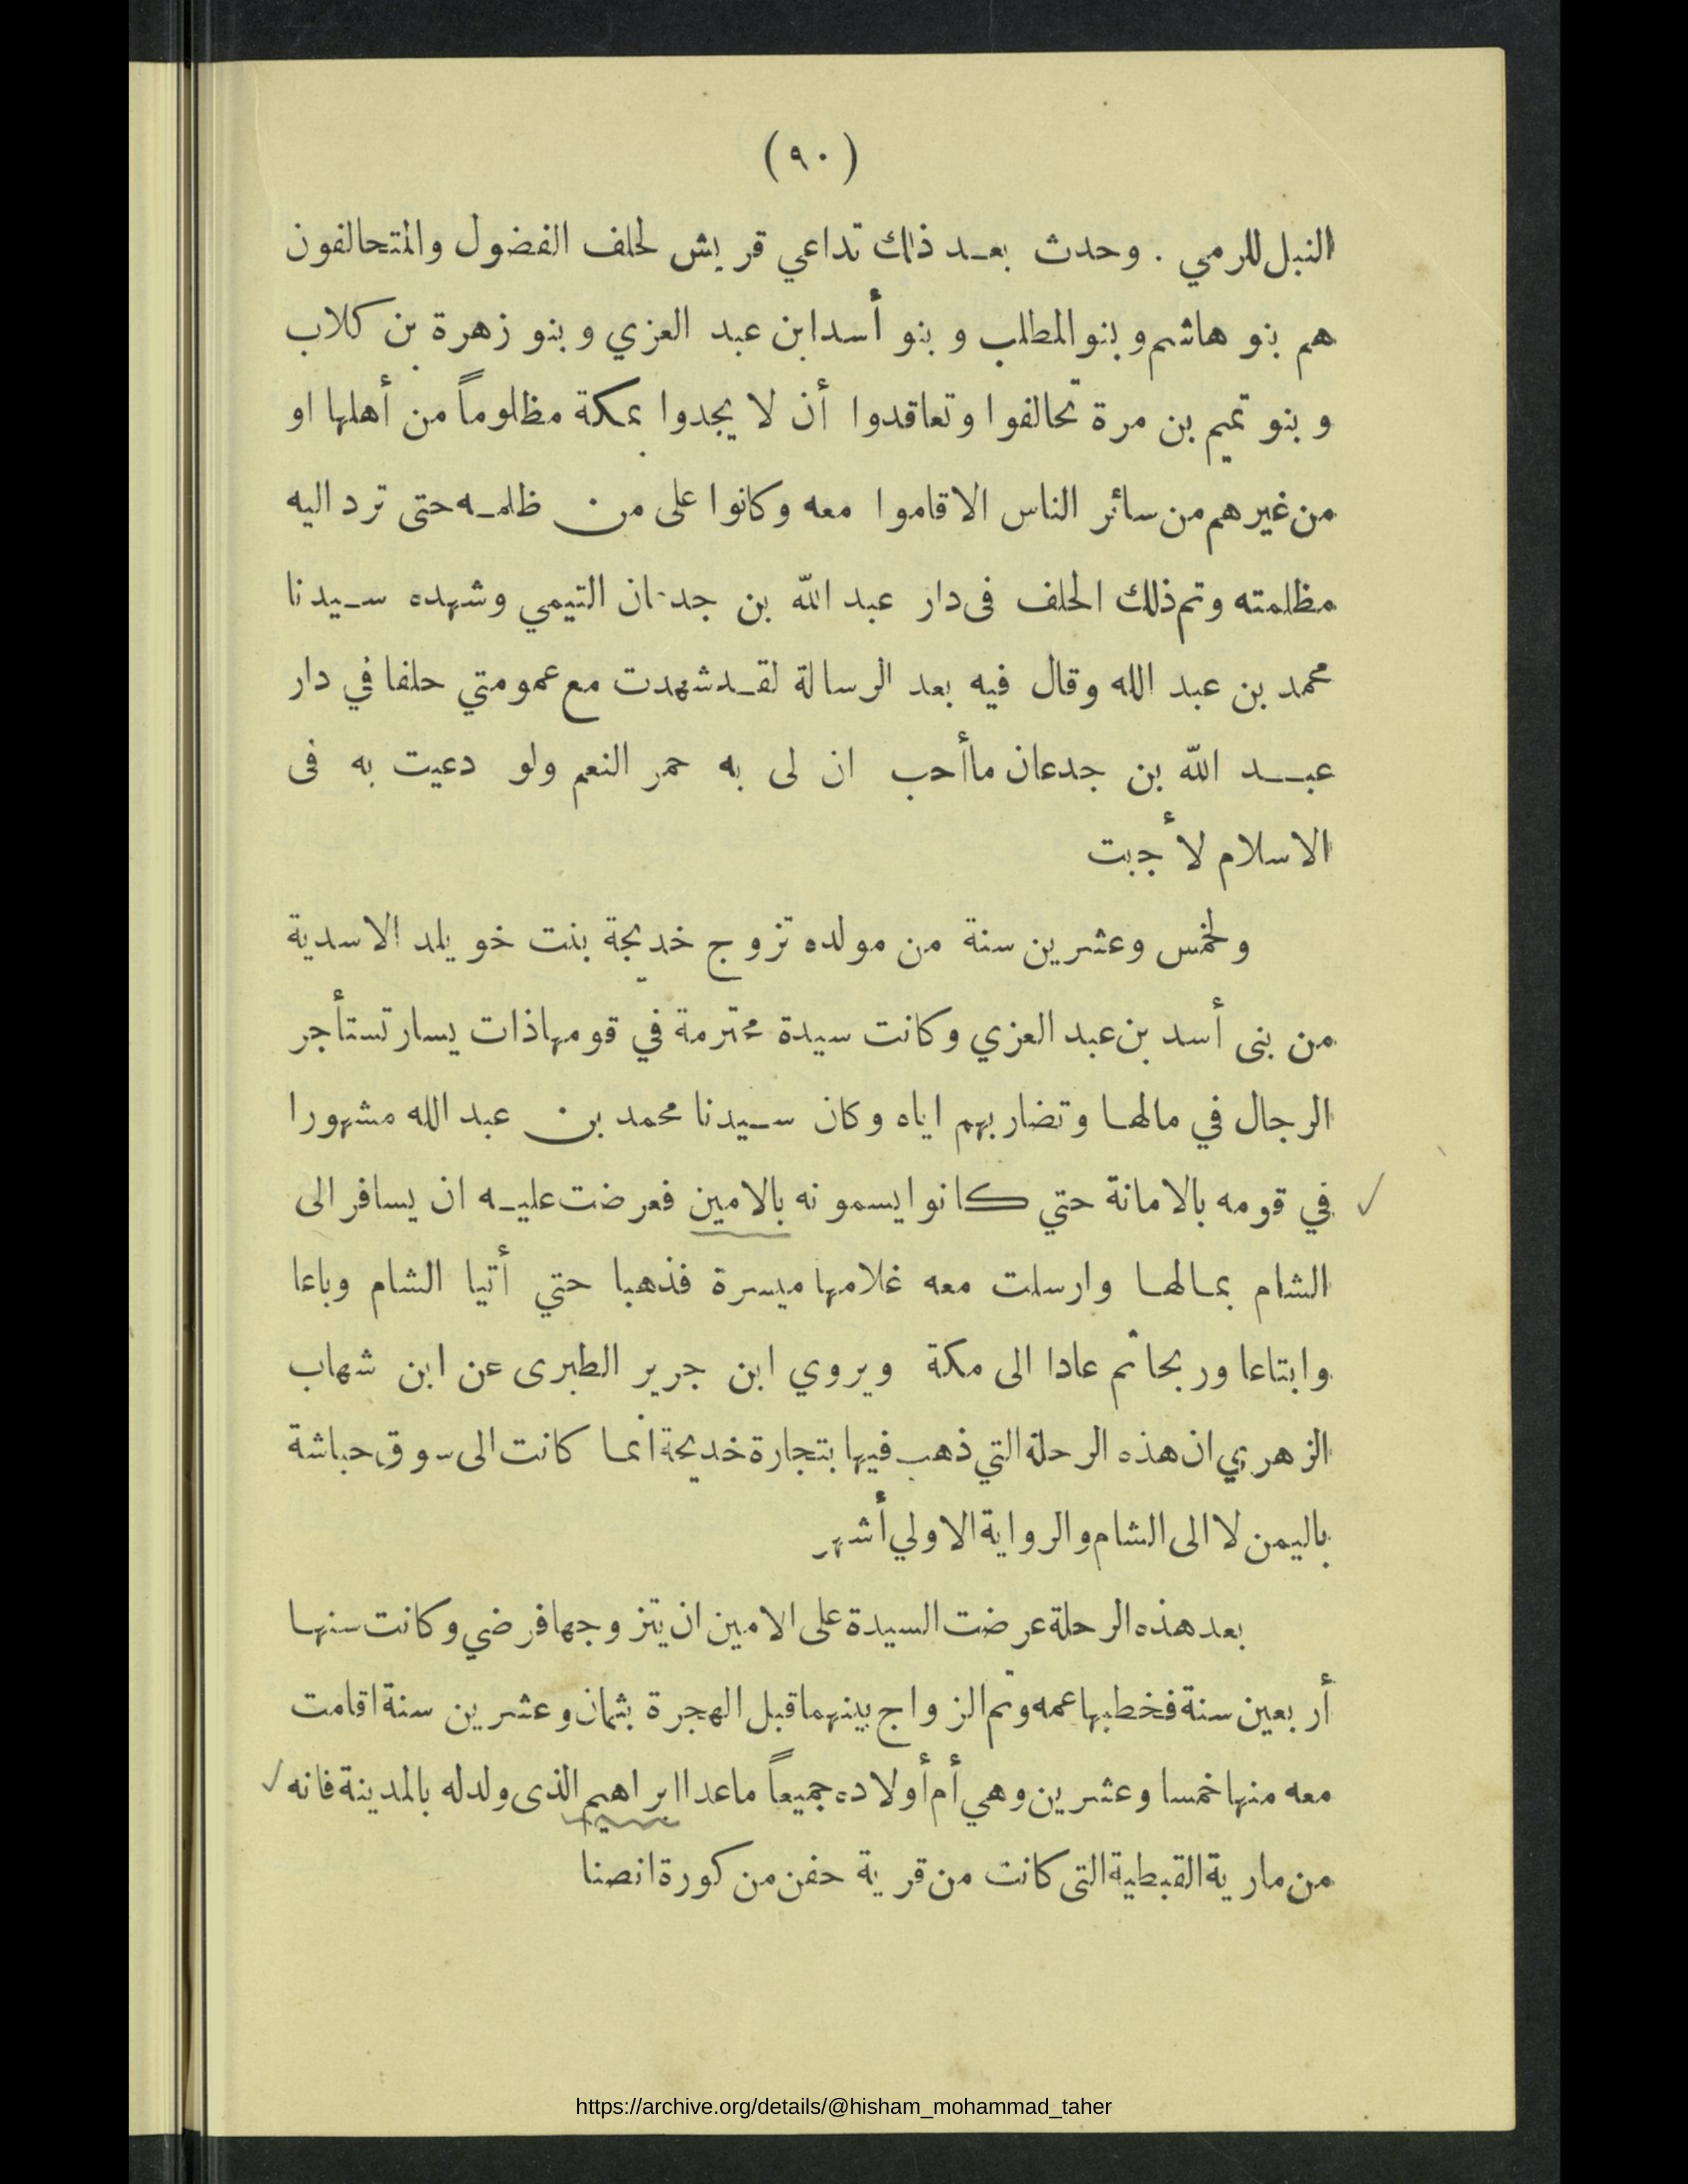 (٩٠)
النبل للرمي . وحدث بعد ذلك تداعي قريش لحلف الفضول والمتحالفون
هم بنو هاشم وبنو المطلب وبنو أسد ابن عبد العزي وبنو زهرة بن كلاب
وبنو تميم بن مرة تحالفوا وتعاقدوا أن لا يجدوا بمكة مظلوماً من أهلها او
من غيرهم من سائر الناس الا قاموا معه وكانوا على من ظلمه حتى ترد اليه
مظلمته وتم ذلك الحلف فى دار عبد الله بن جدعان التيمي وشهده سيدنا
محمد بن عبد الله وقال فيه بعد الرسالة لقد شهدت مع عمومتي حلفا في دار
عبد الله بن جدعان ما أحب ان لى به حمر النعم ولو دعيت به فى
الاسلام لأجبت
ولخمس وعشرين سنة من مولده تزوج خديجة بنت خويلد الاسدية
من بنى أسد بن عبد العزي وكانت سيدة محترمة في قومها ذات يسار تستأجر
الرجال في مالها وتضاربهم اياه وكان سيدنا محمد بن عبد الله مشهورا
في قومه بالامانة حتي كانوا يسمونه بالامين فعرضت عليه ان يسافر الى
الشام بمالها وارسلت معه غلامها ميسرة فذهبا حتي أتيا الشام وباعا
وابتاعا وربحا ثم عادا الى مكة ويروي ابن جرير الطبرى عن ابن شهاب
الزهري ان هذه الرحلة التي ذهب فيها بتجارة خديجة انما كانت الى سوق حباشة
باليمن لا الى الشام والرواية الاولي أشهر
بعد هذه الرحلة عرضت السيدة على الامين ان يتزوجها فرضي وكانت سنها
أربعين سنة فخطبها عمه وتم الزواج بينهما قبل الهجرة بثمان وعشرين سنة اقامت
معه منها خمسا وعشرين وهي أم أولاده جميعاً ماعدا ابراهيم الذى ولد له بالمدينة فانه
من مارية القبطية التى كانت من قرية حفن من كورة انصنا
https://archive.org/details/@hisham_mohammad_taher